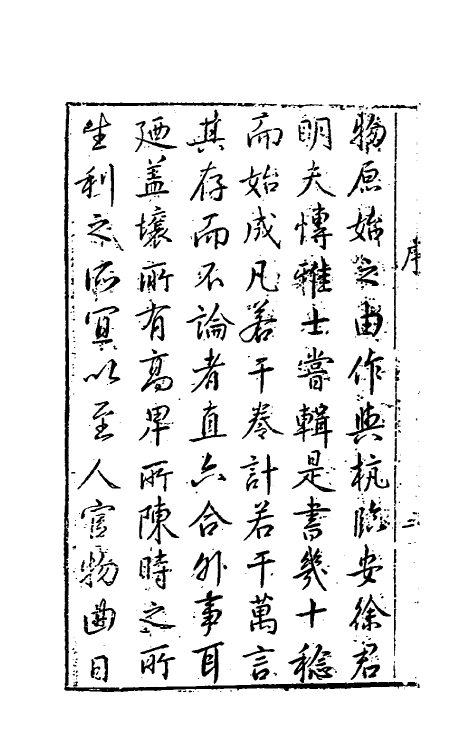 序 二
物原始之由作與杭臨安徐君
明夫愽雅士嘗輯是書幾十稔
而始成凡若干卷計若干萬言
其存而不論者直六合外事耳
廼盖壤所有高卑所陳時之所
生利之所冝以至人官物曲日